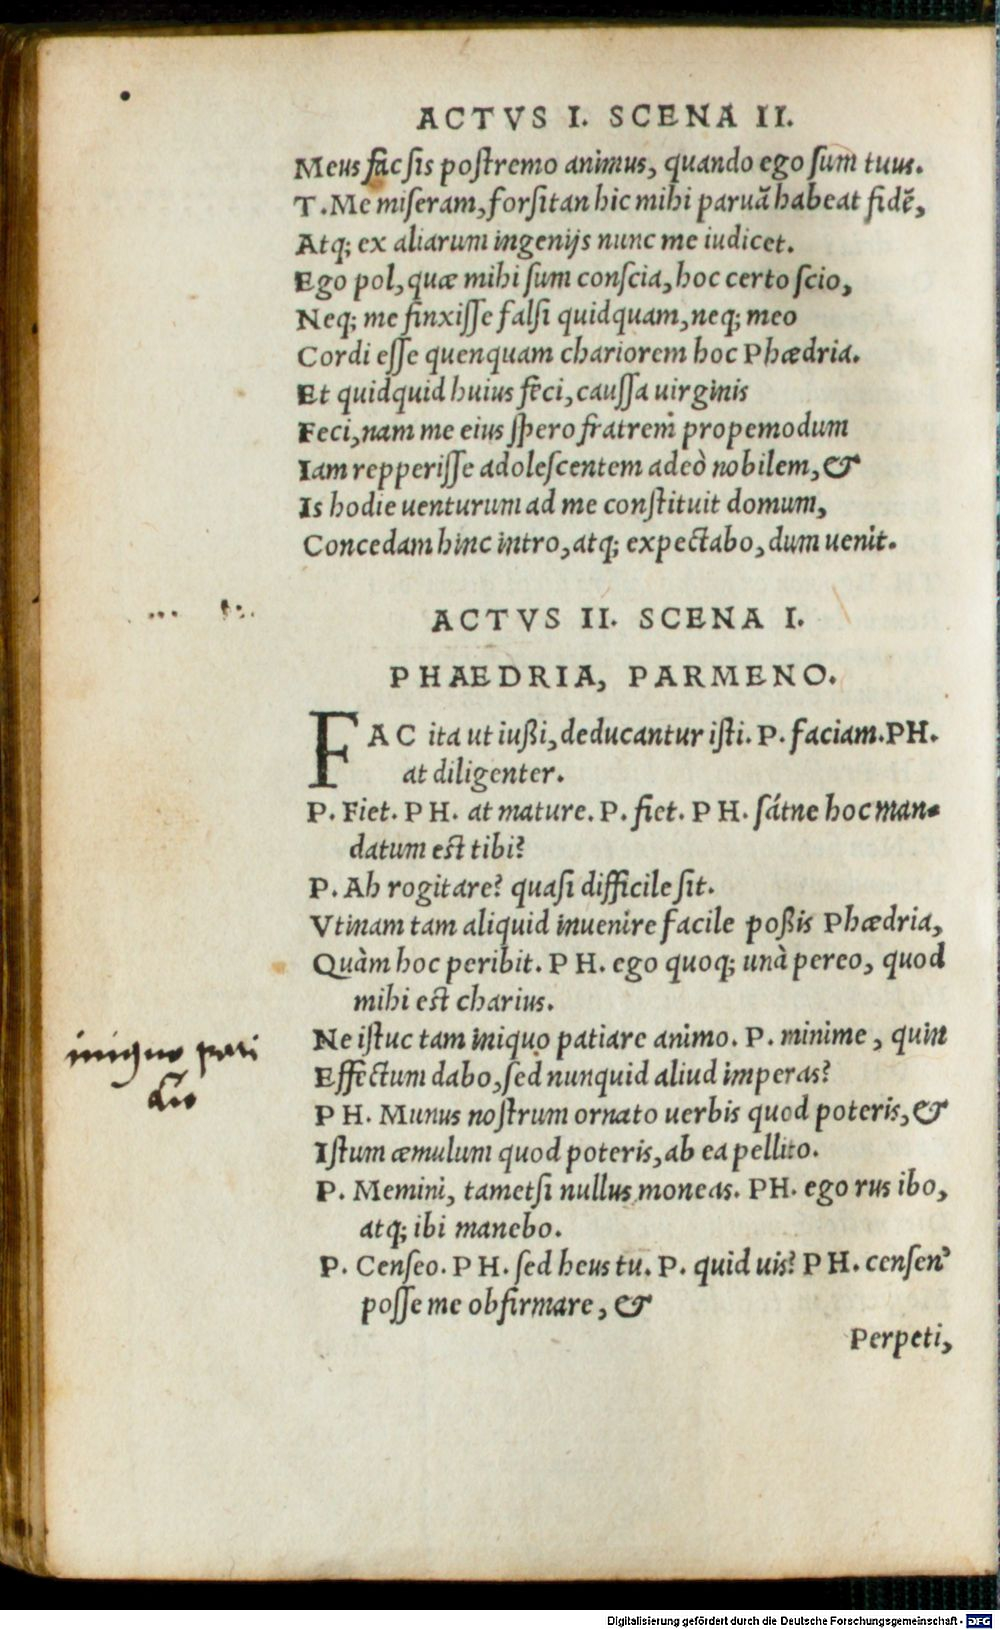 ACTVS I. SCENA II.
Meus fac sis postremo animus, quando ego sum tuus.
T. Me miseram, forsitan hic mihi paruã habeat fidẽ,
Atq; ex aliarum ingenijs nunc me iudicet.
Ego pol, quæ mihi sum conscia, hoc certo scio,
Neq; me finxisse falsi quidquam, neq; meo
Cordi esse quenquam chariorem hoc Phædria.
Et quidquid huius feci, caussa uirginis
Feci, nam me eius spero fratrem propemodum
Iam repperisse adolescentem adeò nobilem, &
Is hodie uenturum ad me constituit domum,
Concedam hinc intro, atq; expectabo, dum uenit.
ACTVS II. SCENA I.
PHAEDRIA, PARMENO.
FAC ita ut iußi, deducantur isti. P. faciam. PH.
at diligenter.
P. Fiet. PH. at mature. P. fiet. PH. sátne hoc man-
datum est tibi?
P. Ah rogitare? quasi difficile sit.
Vtinam tam aliquid inuenire facile poßis Phædria,
Quàm hoc peribit. PH. ego quoq; unà pereo, quod
mihi est charius.
Ne istuc tam iniquo patiare animo. P. minime, quin
iniquo pati
Effectum dabo, sed nunquid aliud imperas?
PH. Munus nostrum ornato uerbis quod poteris, &
Istum æmulum quod poteris, ab ea pellito.
P. Memini, tametsi nullus moneas. PH. ego rus ibo,
atq; ibi manebo.
P. Censeo. PH. sed heus tu. P. quid uis? PH. censen'
posse me obfirmare, &
Perpeti,
Digitalisierung gefördert durch die Deutsche Forschungsgemeinschaft - DFG